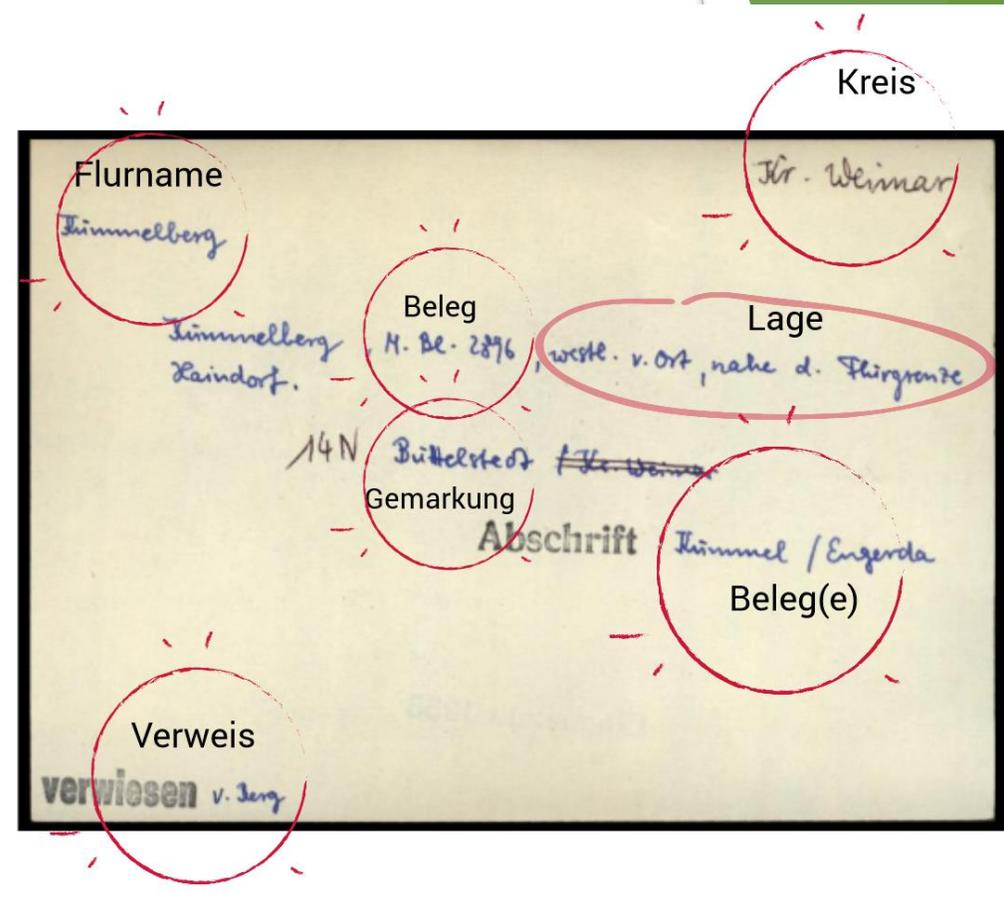 Kreis
Kr. Weimar
Flurname
Kümmelberg
Beleg
Lage
Kümmelberg, M. Bl. 2896, westl. v. Ort, nahe d. Flurgrenze
Haindorf.
14N Buttelstedt / Kr. Weimar
Gemarkung
Abschrift
Kümmel / Engerda
Beleg(e)
Verweis
verwiesen v. Berg